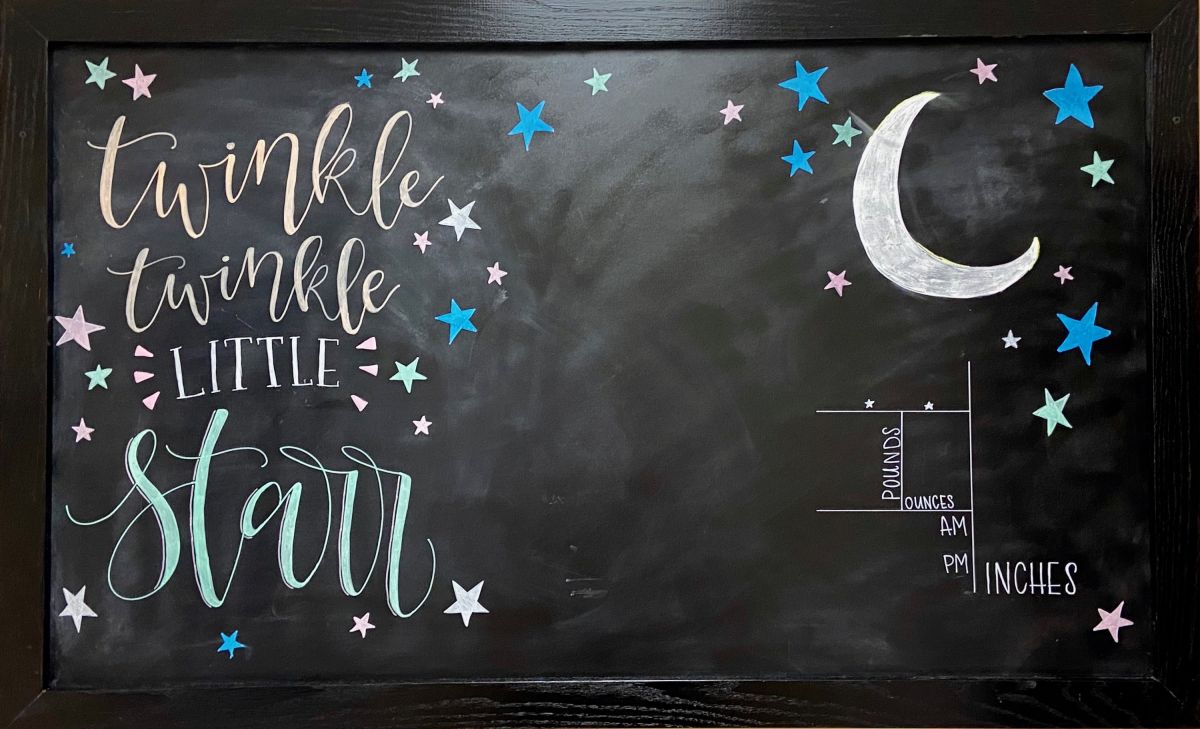 twinkle
twinkle
LITTLE
starr
POUNDS
OUNCES
AM
PM
INCHES